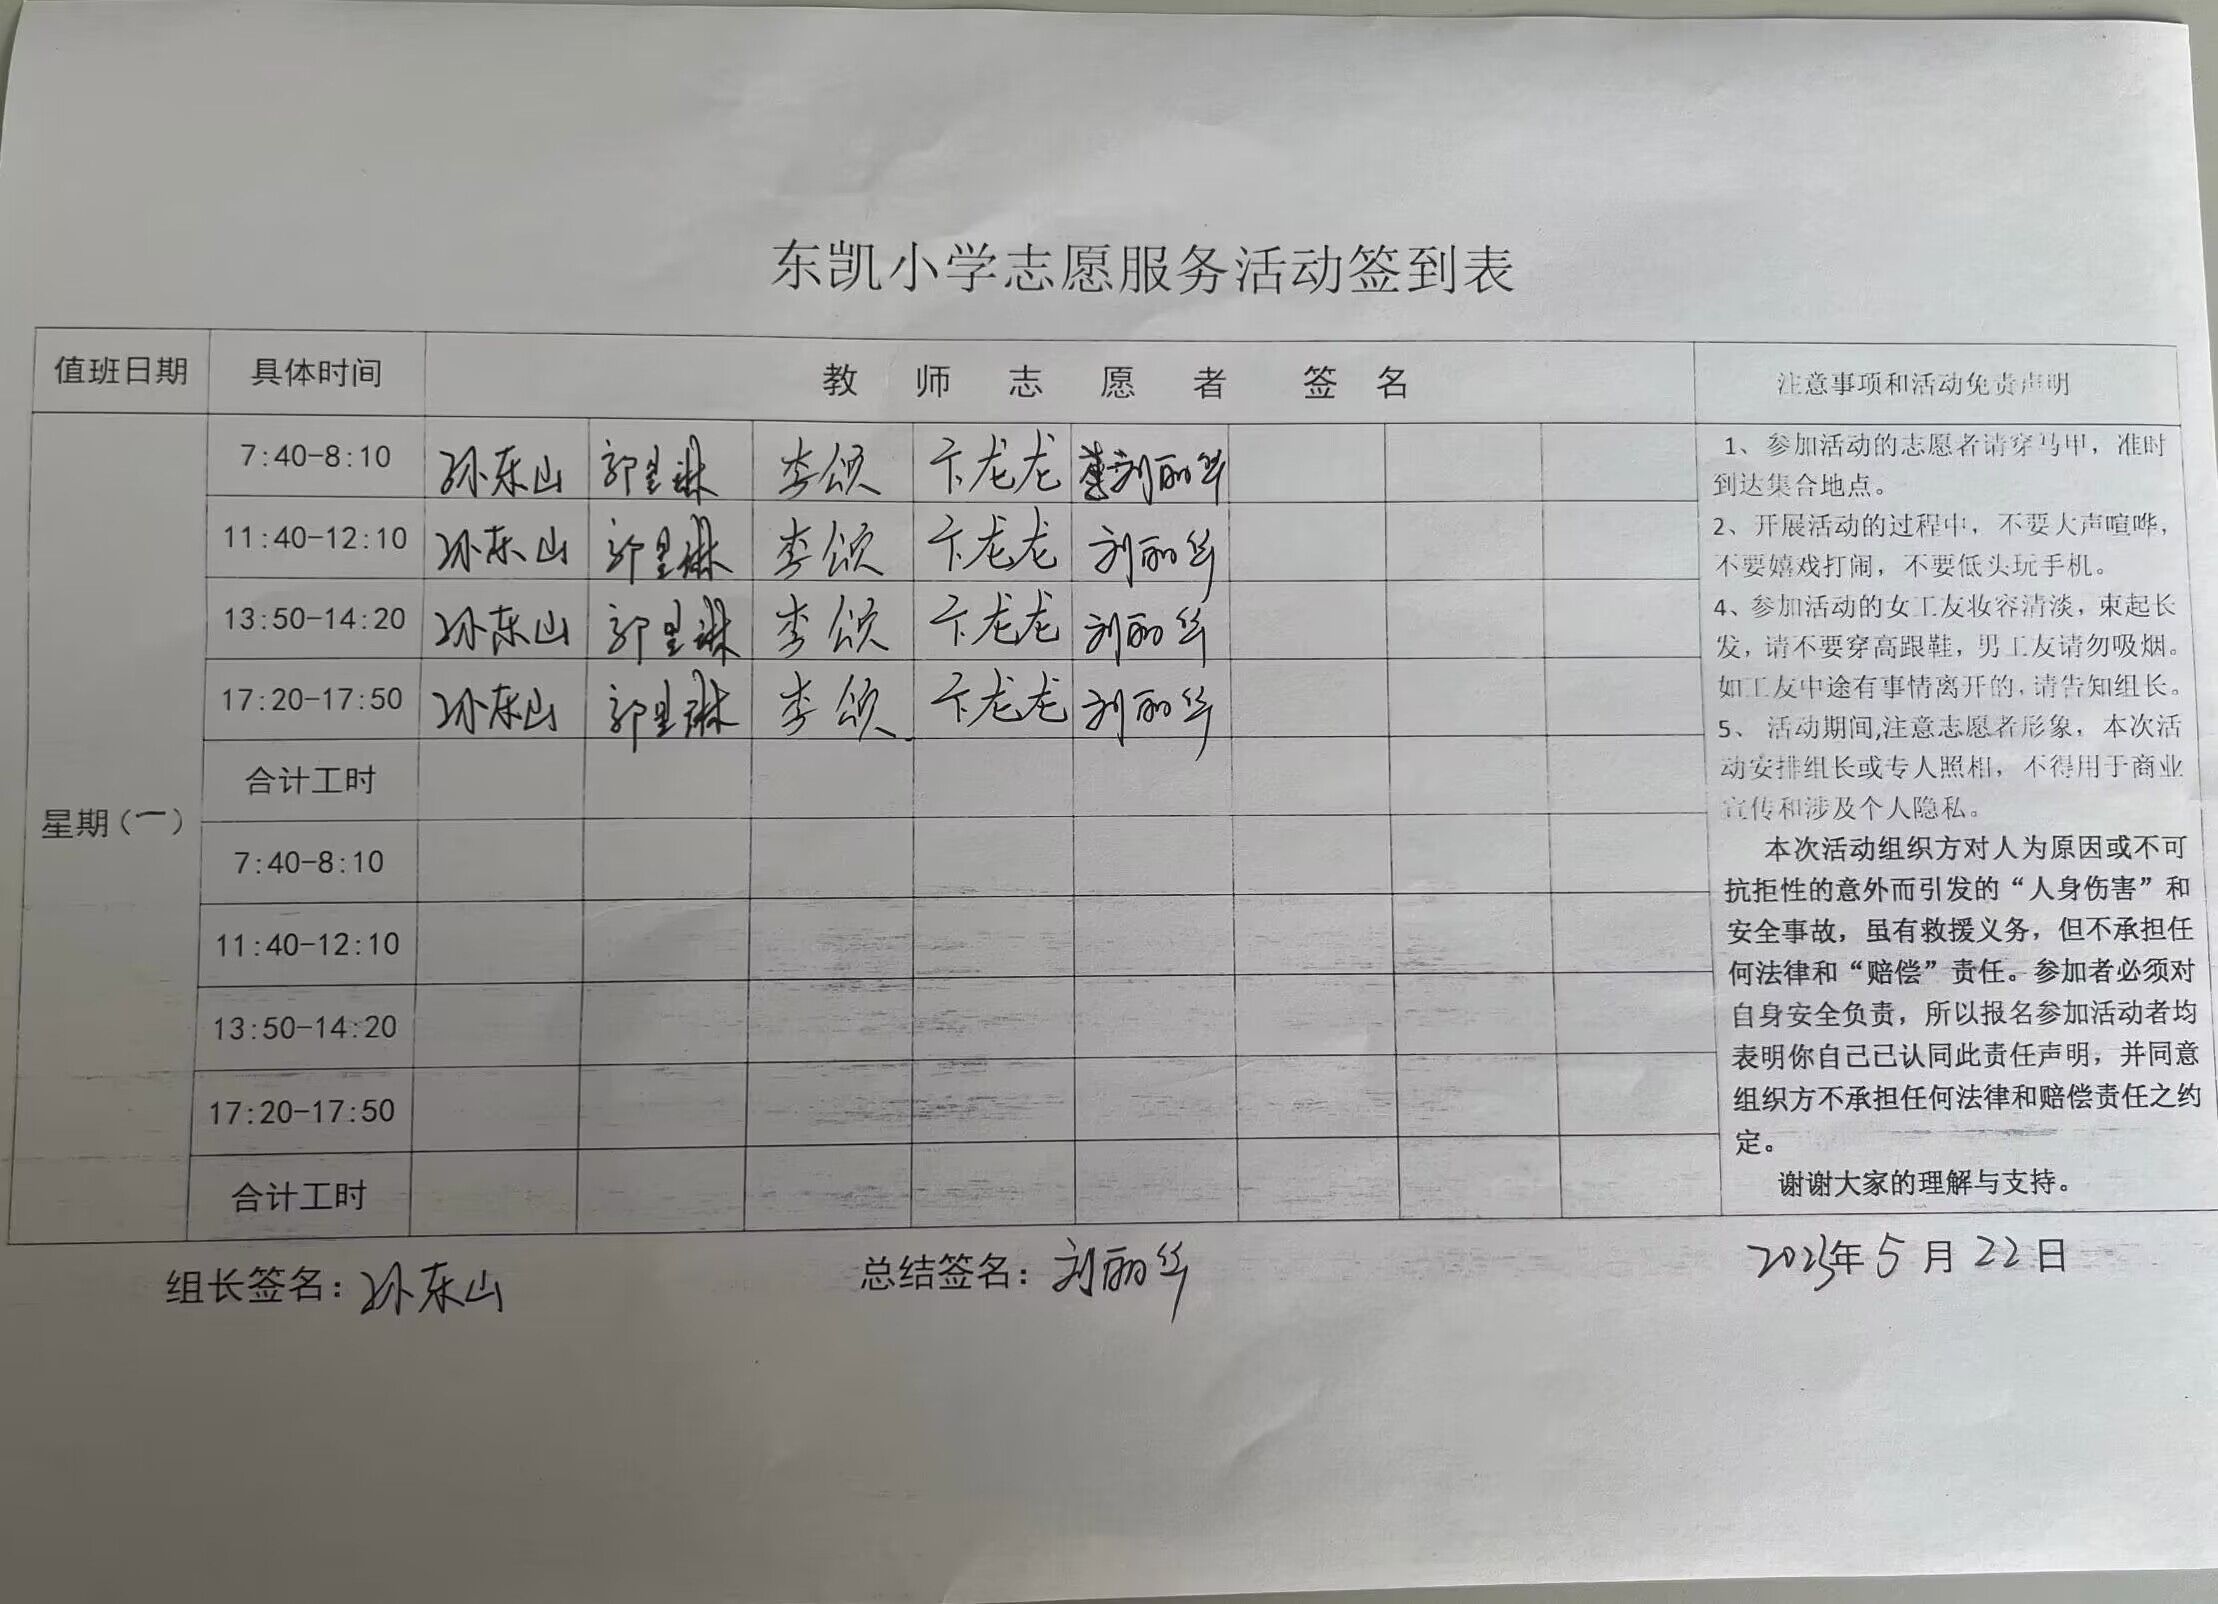 东凯小学志愿服务活动签到表
值班日期 具体时间 教师志愿者 签名 注意事项和活动免责声明
星期(一)
7:40-8:10 孙东山 郭呈琳 李颂 卞龙龙 刘丽丝
11:40-12:10 孙东山 郭呈琳 李颂 卞龙龙 刘丽丝
13:50-14:20 孙东山 郭呈琳 李颂 卞龙龙 刘丽丝
17:20-17:50 孙东山 郭呈琳 李颂 卞龙龙 刘丽丝
合计工时
7:40-8:10
11:40-12:10
13:50-14:20
17:20-17:50
合计工时
1、参加活动的志愿者请穿马甲，准时
到达集合地点。
2、开展活动的过程中，不要大声喧哗，
不要嬉戏打闹，不要低头玩手机。
4、参加活动的女工友妆容清淡，束起长
发，请不要穿高跟鞋，男工友请勿吸烟。
如工友中途有事情离开的，请告知组长。
5、 活动期间,注意志愿者形象，本次活
动安排组长或专人照相，不得用于商业
宣传和涉及个人隐私。
本次活动组织方对人为原因或不可
抗拒性的意外而引发的“人身伤害”和
安全事故，虽有救援义务，但不承担任
何法律和“赔偿”责任。参加者必须对
自身安全负责，所以报名参加活动者均
表明你自己己认同此责任声明，并同意
组织方不承担任何法律和赔偿责任之约
定。
谢谢大家的理解与支持。
组长签名：孙东山 总结签名：刘丽丝 2023年5月22日